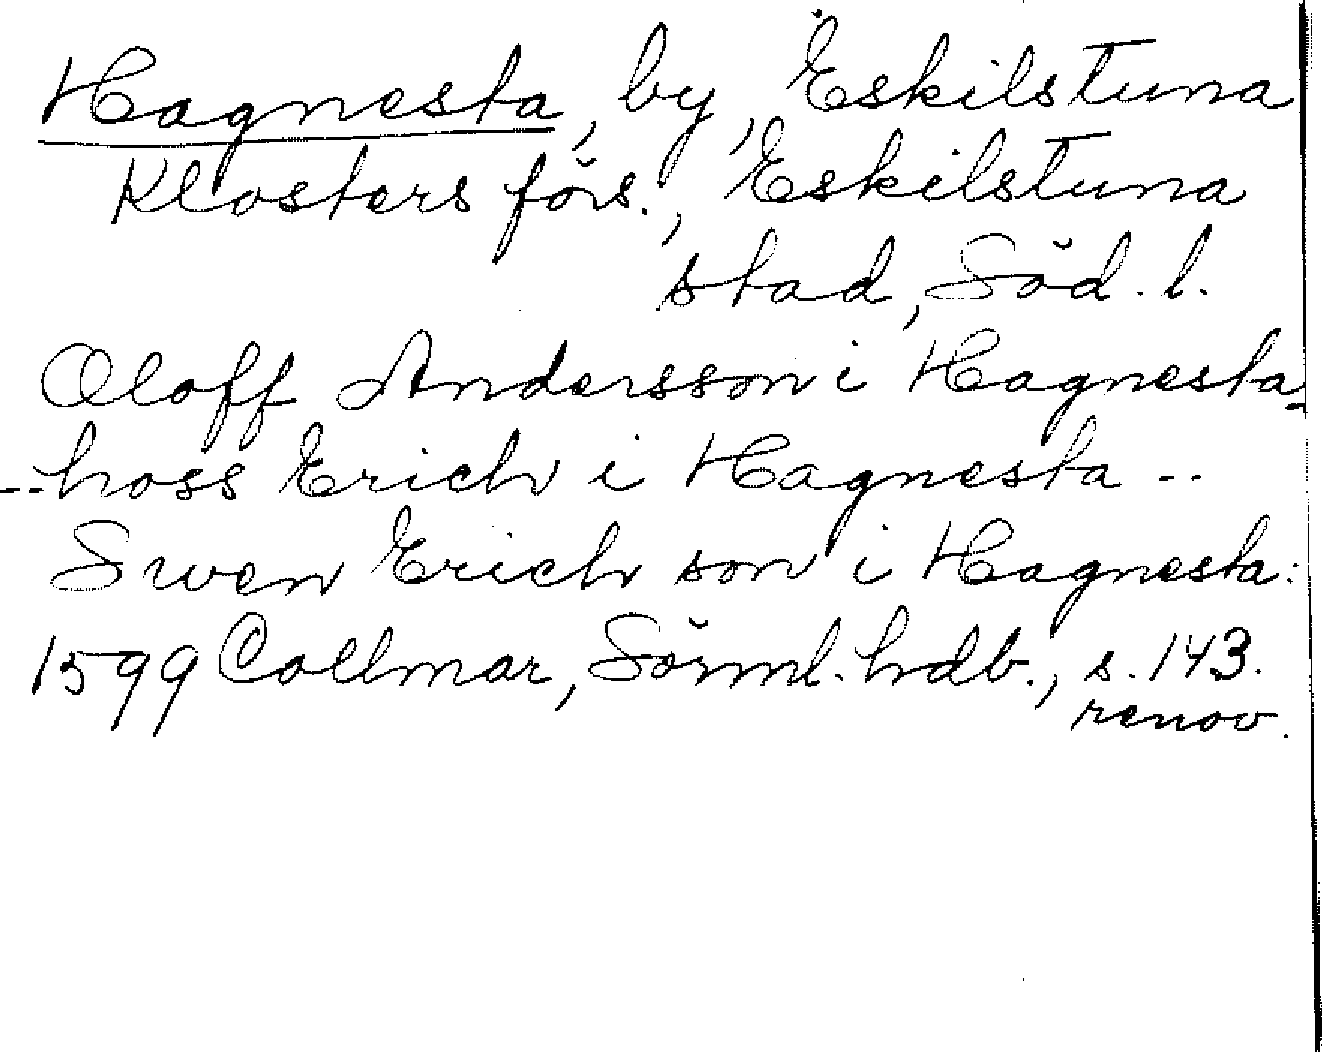 Hagnesta, by, Eskilstuna
Klosters förs., Eskilstuna
stad, Söd. l.
Oloff Andersson i Hagnesta -
-- hoss Erich i Hagnesta --
Swen Erich son i Hagnesta:
1599 Collmar, Sörml. hdb., s. 143.
renov.